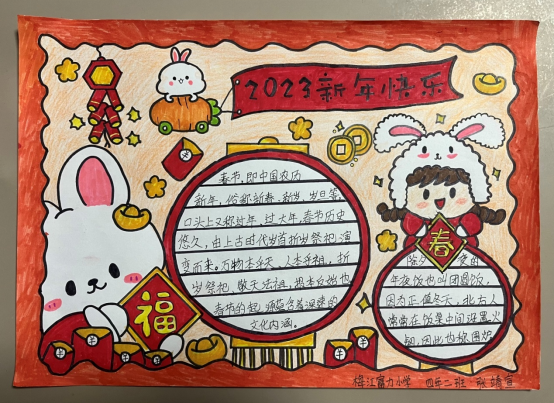 2023新年快乐
春节,即中国农历
新年,俗称新春、新岁、岁旦等,
口头上又称过年、过大年。春节历史
悠久,由上古时代岁首祈岁祭祀演
变而来。万物本乎天、人本乎祖,祈
岁祭祀、敬天法祖,报本反始也
春节的起源蕴含着深邃的
文化内涵。
福
春
除夕
年夜饭也叫团圆饭,
因为正值冬天,北方人
常常在饭桌中间设置火
锅,因此也称围炉
梅江富力小学 四年二班 张